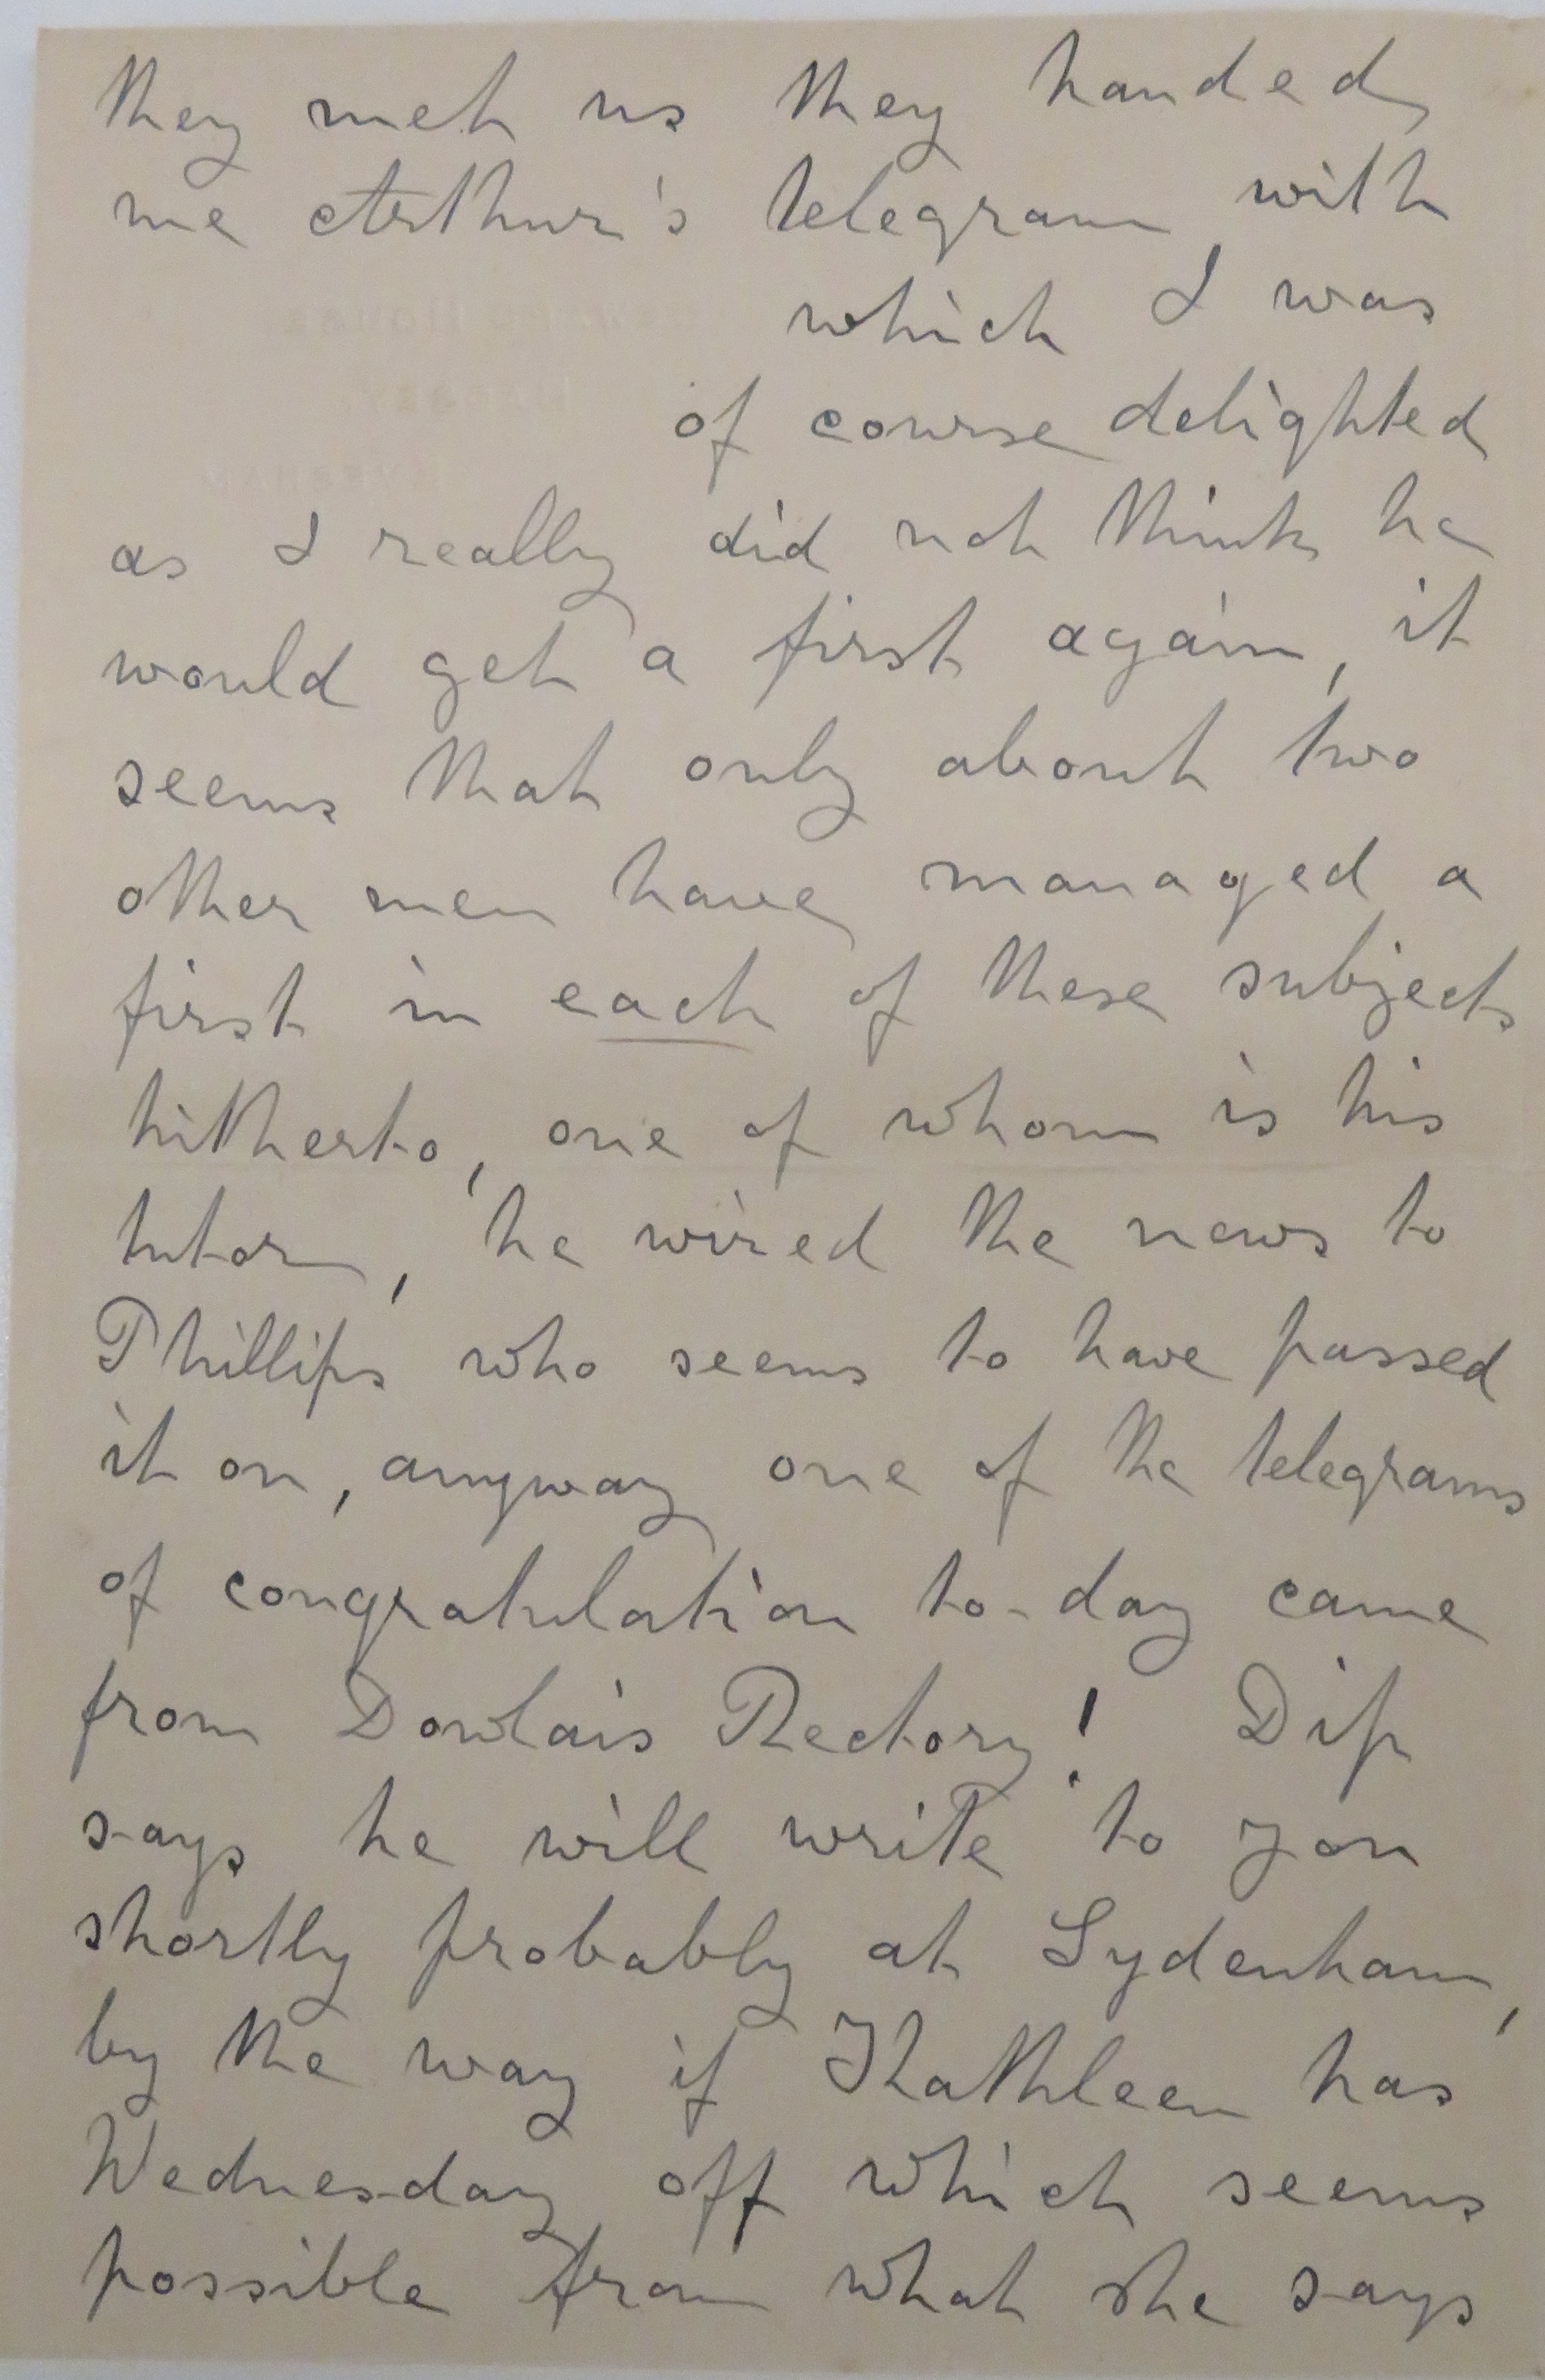 they met us they handed
me Arthur's telegram, with
which I was
of course delighted
as I really did not think he
would get a first again, it
seems that only about two
other men have managed a
first in each of these subjects
hitherto, one of whom is his
tutor, he wired the news to
Phillips who seems to have passed
it on, anyway one of the telegrams
of congratulation to-day came
from Dowlais Rectory! Dip
says he will write to you
shortly probably at Sydenham,
by the way if Kathleen has
Wednesday off which seems
possible from what she says